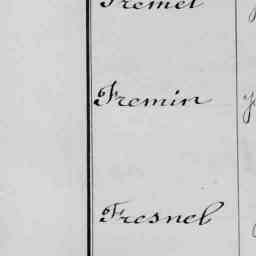 Fremet
Fremin
Fresnel